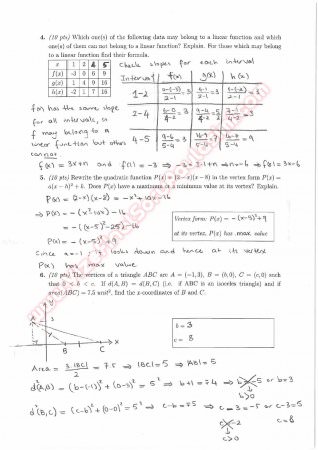 4. (10 pts) Which one(s) of the following data may belong to a linear function and which
one(s) of them can not belong to a linear function? Explain. For those which may belong
to a linear function find their formula.
x 1 2 4 5
f(x) -3 0 6 9
g(x) 1 4 9 16
h(x) -2 1 7 16
Check slopes for each interval
Interval f(x) g(x) h(x)
1-2 0-(-3)/2-1 = 3 4-1/2-1 = 3 1-(-2)/2-1 = 3
2-4 6-0/4-2 = 3 9-4/4-2 = 5/2 7-1/4-2 = 3
4-5 9-6/5-4 = 3 16-9/5-4 = 7 16-7/5-4 = 9
f(x) has the same slope
for all intervals, so
f may belong to a
linear function but others
cannot
f(x) = 3x+n and f(1) = -3 ⇒ -3 = 3·1+n ⇒ n = -6 ⇒ f(x) = 3x-6
5. (10 pts) Rewrite the quadratic function P(x) = (2-x)(x-8) in the vertex form P(x) =
a(x-h)² + k. Does P(x) have a maximum or a minimum value at its vertex? Explain.
P(x) = (2-x)(x-8) = -x²+10x-16
⇒ P(x) = -(x²-10x)-16
= -((x-5)²-25)-16
P(x) = -(x-5)²+9
Vertex form: P(x) = -(x-5)²+9
at its vertex, P(x) has max. value
Since a=-1, it looks down and hence at its vertex
P(x) has max value
6. (10 pts) The vertices of a triangle ABC are A = (-1,3), B = (b,0), C = (c,0) such
that 0 < b < c. If d(A,B) = d(B,C) (i.e. if ABC is an isosceles triangle) and if
area(ABC) = 7.5 unit², find the coordinates of B and C.
A
3
-1
B
C
x
b = 3
c = 8
Area = 3·|BC|/2 = 7.5 ⇒ |BC| = 5 ⇒ |AB| = 5
d²(A,B) = (b-(-1))² + (0-3)² = 5² ⇒ b+1 = ∓4 ⇒ b = -5 or b = 3
b>0
d²(B,C) = (c-b)² + (0-0)² = 5² ⇒ c-b = ∓5 ⇒ c-3 = -5 or c-3 = 5
c = -2
c = 8
c>0